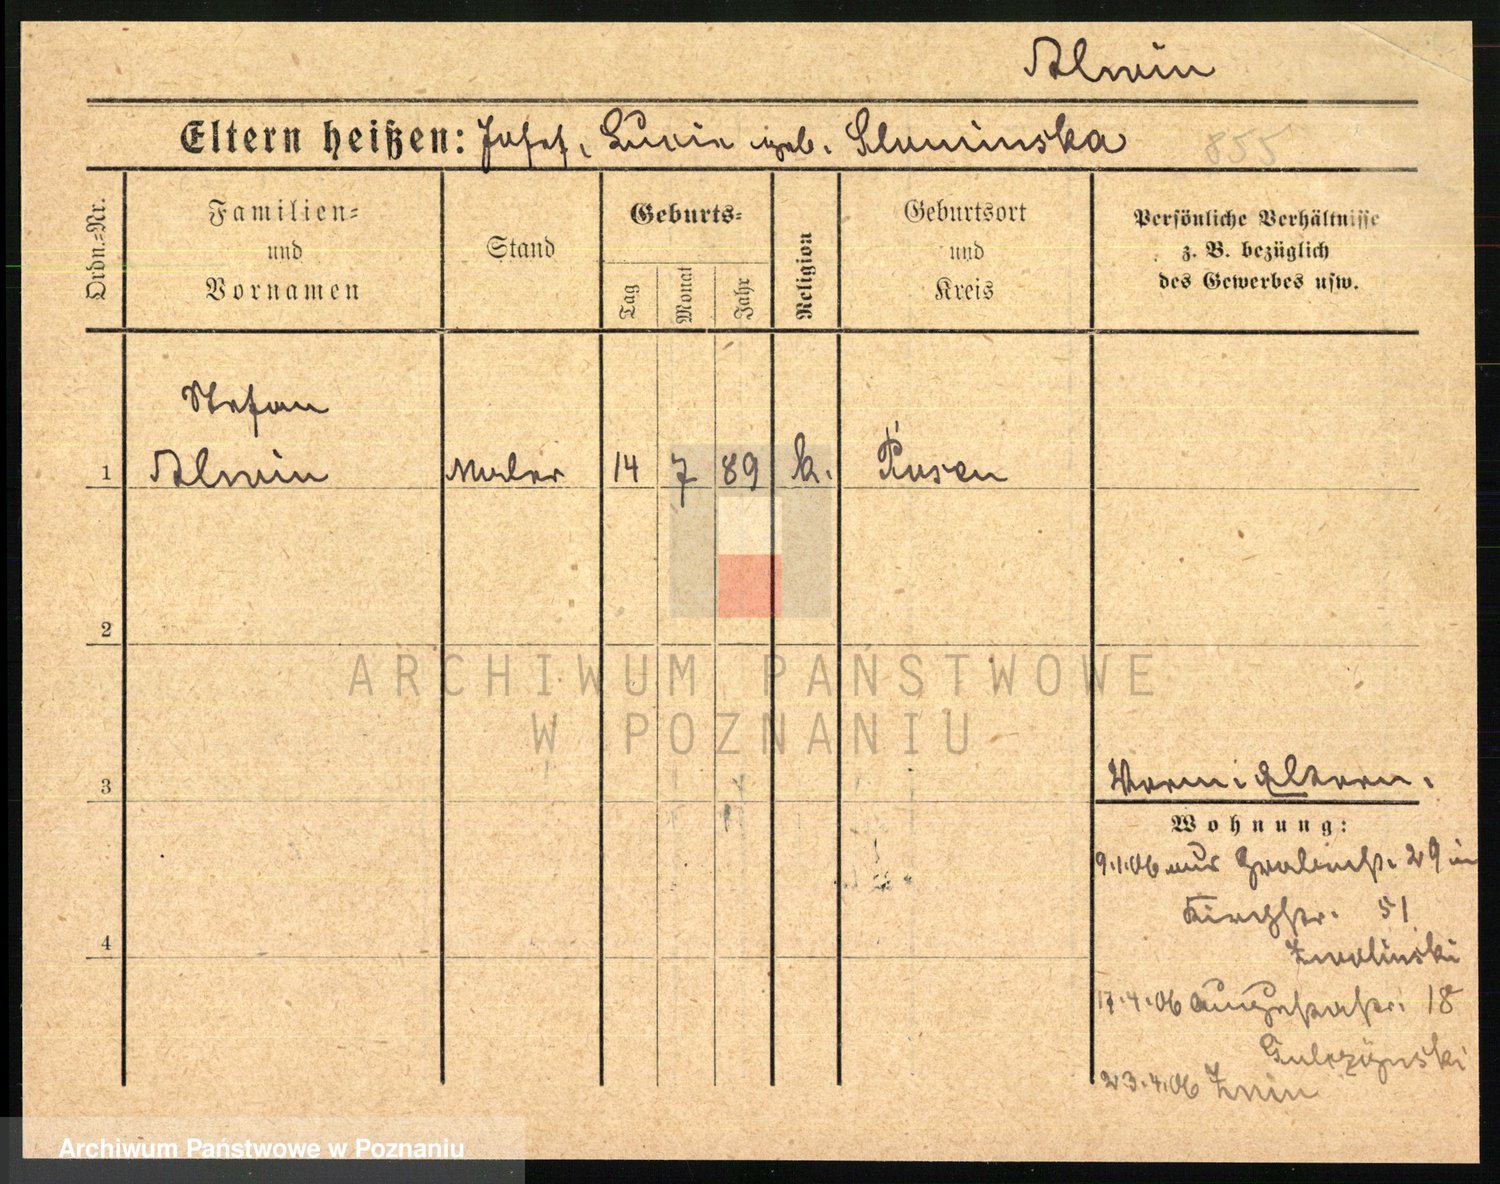 Alwin
Eltern heißen: Josef, Lucia geb. Slominska
855
Ordn.=Nr.
Familien=
und
Vornamen
Stand
Geburts=
Tag
Monat
Jahr
Religion
Geburtsort
und
Kreis
Persönliche Verhältnisse
z. B. bezüglich
des Gewerbes usw.
Stefan
1 Alwin Maler 14 7 89 k. Posen
2
ARCHIWUM PAŃSTWOWE
W POZNANIU
3
Vorm: Eltern.
Wohnung:
9.1.06 aus Grabenstr. 29 in
Kirchstr. 51
Zwolinski
4
17.4.06 Augustastr. 18
Gulczynski
23.4.06 Znin
Archiwum Państwowe w Poznaniu